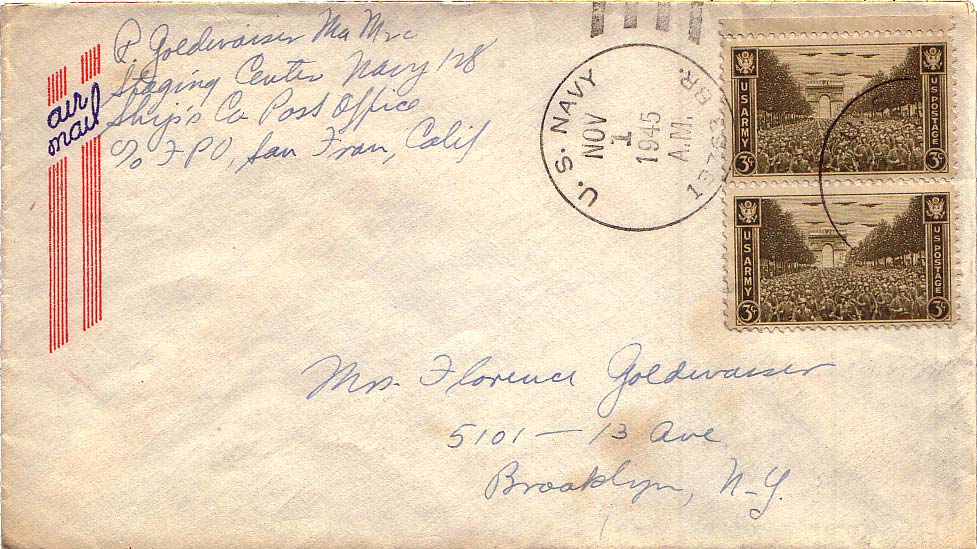 P Goldwasser Ma M2c
Staging Center Navy 128
Ship's Co Post Office
c/o FPO, San Fran, Calif
air
mail
U.S. NAVY
NOV
1
1945
A.M.
13763 BR.
US ARMY
US POSTAGE
3¢
3¢
US ARMY
US POSTAGE
3¢
3¢
Mrs. Florence Goldwasser
5101 — 13 Ave
Brooklyn, N-Y.